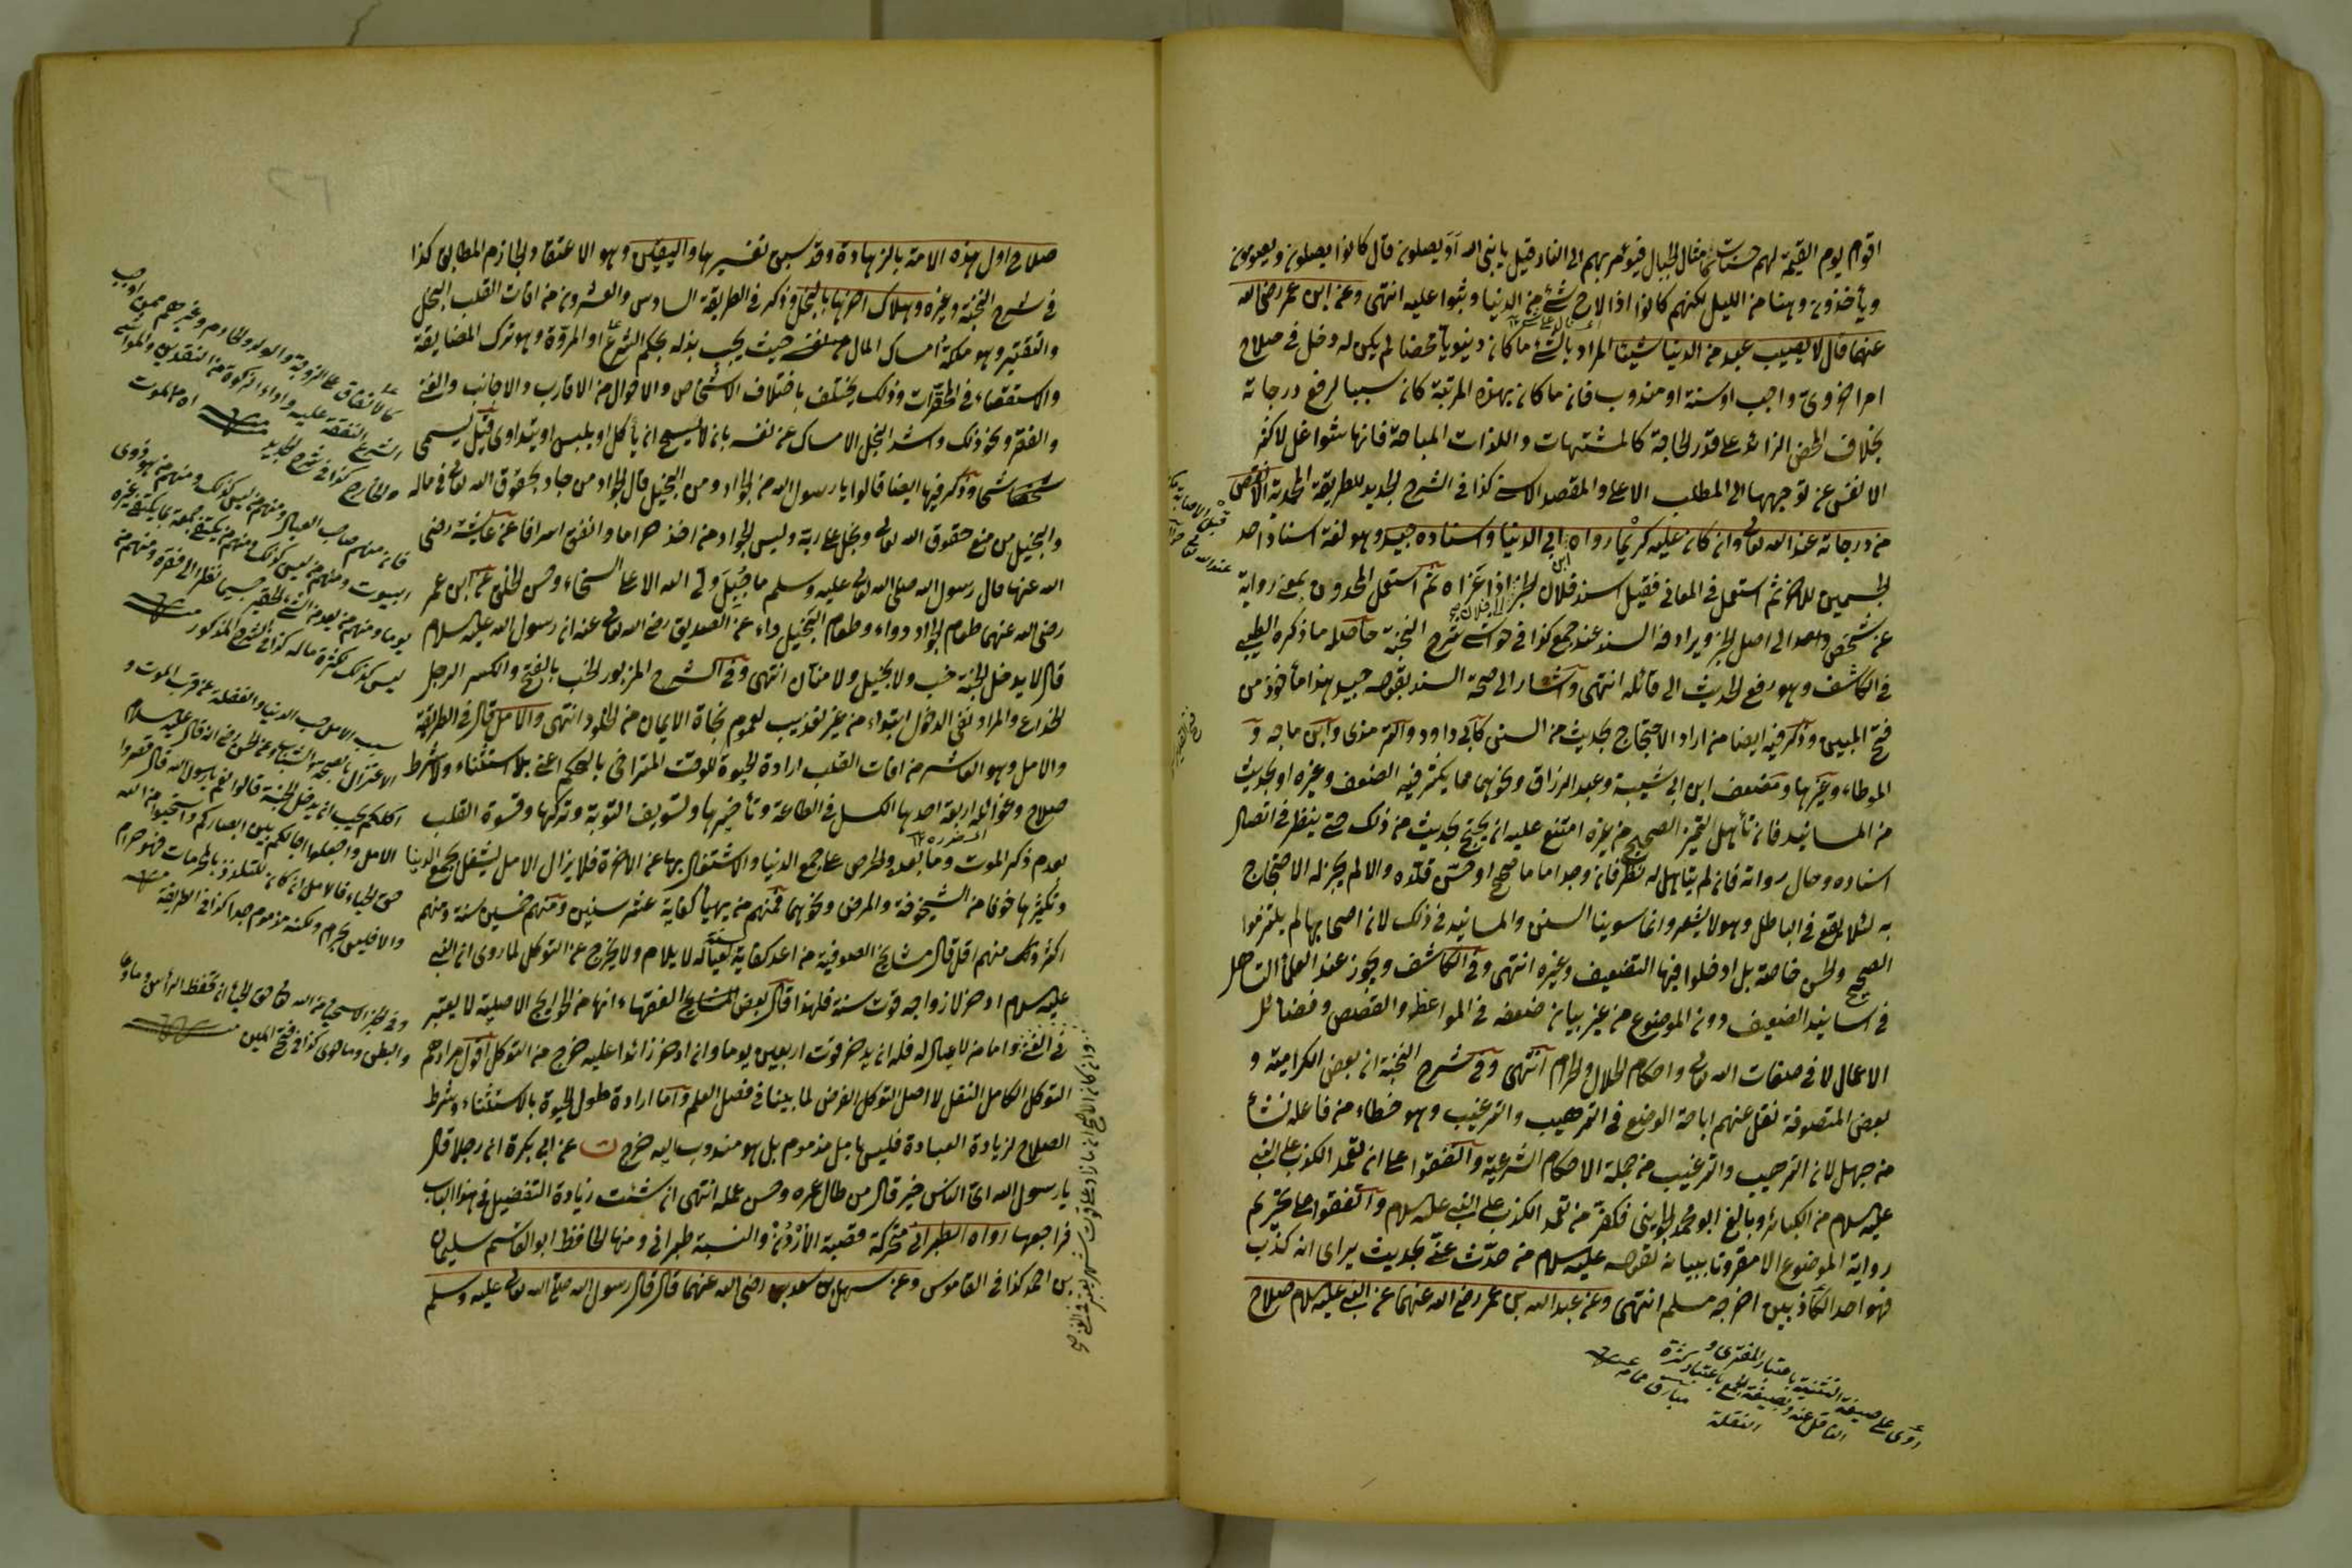 اقوام يوم القيمة لهم حسنات كامثال الجبال فيؤمر بهم الى النار فقيل يا نبى الله أو يصلون قال كانوا يصلون ويصومون
ويأخذون وهنا من الليل لكنهم كانوا اذا لاح شئ من الدنيا وثبوا عليه انتهى وعن ابن عمر رضى الله
عنهما قال لا يصيب عبد من الدنيا شيئا المراد بالشئ ما كان دنيويا محضا لم يكن له دخل فى صلاح
امر اخروى واجب او سنة او مندوب فان ما كان بهذه المرتبة كان سببا لرفع درجاته
بخلاف المحض الزائد على قدر الحاجة كالمشتهيات واللذات المباحة فانها شواغل لاكثر
الانفس عن توجهها الى المطلب الاعلى والمقصد الاسنى كذا فى الشرح الجديد للطريقة المحمدية الا نقص
من درجاته عند الله تعالى وان كان عليه كريما رواه ابن ابى الدنيا واسناده جيد وهو لغة اسناد احد
الجسمين للاخر ثم استعمل فى المعانى فقيل اسند فلان الخبر الى فلان اذا عزاه ثم استعمل المحدثون بمعنى رواية
عن شخص واحد الى اصل الخبر ويرادفه السند عند جمع كذا فى حواشى شرح النخبة حاصله ما ذكره الطيبى
فى الكاشف وهو رفع الحديث الى قائله انتهى واشار الى صحة السند بقوله جيد هذا مأخوذ من
فتح المبين وذكر فيه ايضا من اراد الاحتجاج بحديث من السنن كابى داود والترمذى وابن ماجه و
الموطاء وغيرها ومصنف ابن ابى شيبة وعبد الرزاق ونحوهما مما يكثر فيه الضعيف وغيره او بحديث
من المسانيد فان تأهل لتمييز الصحيح من غيره امتنع عليه ان يحتج بحديث من ذلك حتى ينظر فى اتصال
اسناده وحال رواته فان لم يتاهل له نظر فان وجد اماما صحح او حسن قلده والا لم يجز له الاحتجاج
به لئلا يقع فى الباطل وهو لا يشعر وانما سوينا السنن والمسانيد فى ذلك لان اصحابها لم يلتزموا
الصحيح والحسن خاصة بل ادخلوا فيها الضعيف وغيره انتهى وفى الكاشف ويجوز عند العلماء التساهل
فى اسانيد الضعيف دون الموضوع من غير بيان ضعفه فى المواعظ والقصص وفضائل
الاعمال لا فى صفات الله تعالى واحكام الحلال والحرام انتهى وفى شرح النخبة ان بعض الكرامية و
بعض المتصوفة نقل عنهم اباحة الوضع فى الترهيب والترغيب وهو خطاء من فاعله نشأ
من جهل لان الترهيب والترغيب من جملة الاحكام الشرعية واتفقوا على ان تعمد الكذب على النبى
عليه السلام من الكبائر وبالغ ابو محمد الجوينى فكفر من تعمد الكذب على النبى عليه السلام واتفقوا على تحريم
رواية الموضوع الا مقرونا ببيانه لقوله عليه السلام من حدث عنى بحديث يرى انه كذب
فهو احد الكاذبين اخرجه مسلم انتهى وعن عبد الله بن عمر رضى الله عنهما عن النبى عليه السلام صلاح
روى على صيغة التثنية باعتبار المفترى و
الناقل عنه وبصيغة الجمع باعتبار كثرة
النقلة
صلاح اول هذه الامة بالزهادة وقد سبق تفسيرها واليقين وهو الاعتقاد الجازم المطابق كذا
فى شرح النخبة وغيره وهلاك اخرها بالبخل وذكر فى الطريقة السادس والعشرون من افات القلب البخل
والتقتير وهو ملكة امساك المال حيث يجب بذله بحكم الشرع او المروة وهو ترك المضايقة
والاستقصاء فى المحقرات وذلك يختلف باختلاف الاشخاص والاحوال من الاقارب والاجانب والغنى
والفقر ونحو ذلك واشد البخل الامساك عن نفسه بان لا يسمح ان يأكل او يلبس او يتداوى قيل يسمى
شحا وذكر فيها ايضا قالوا يا رسول الله من الجواد ومن البخيل قال الجواد من جاد بحقوق الله تعالى فى ماله
والبخيل من منع حقوق الله تعالى وبخل على ربه وليس الجواد من اخذ حراما وانفق اسرافا عن عائشة رضى
الله عنها قال رسول الله صلى الله تعالى عليه وسلم ما جبل ولى الله الا على السخاء وحسن الخلق عن ابن عمر
رضى الله عنهما طعام الجواد دواء وطعام البخيل داء عن الصديق رضى الله تعالى عنه ان رسول الله عليه السلام
قال لا يدخل الجنة خب ولا بخيل ولا منان انتهى وفى الشرح المزبور الخب بالفتح والكسر الرجل
الخداع والمراد نفى الدخول ابتداء من غير تعذيب لعموم نجاة الايمان من الخلود انتهى والامل قال فى الطريقة
والامل وهو العاشر من افات القلب ارادة الحيوة للوقت المتراخى بالحكم اعنى بلا استثناء ولا شرط
صلاح وغوائله اربعة احدها الكسل فى الطاعة وتأخيرها وتسويف التوبة وتركها وقسوة القلب
بعدم ذكر الموت وما بعده والحرص على جمع الدنيا والاشتغال بها عن الاخرة فلا يزال الامل يشغل بجمع الدنيا
وتكثيرها خوفا من الشيخوخة والمرض ونحوهما فمنهم من يهيأ كفاية عشر سنين ومنهم خمسين سنة ومنهم
اكثر وك منهم اقل قال مشايخ الصوفية من اعد كفاية سنة لعياله لا يلام ولا يخرج عن التوكل لما روى ان النبى
عليه السلام ادخر لازواجه قوت سنة فلهذا قال بعض المشايخ الفقهاء انها من الحوايج الاصلية لا يعتبر
فى الغنى واما من لا عيال له فله ان يدخر قوت اربعين يوما وان ادخر زائدا عليه خرج من التوكل اقول مرادهم
التوكل الكامل النفل لا اصل التوكل الفرض لما بينا فى فصل العلم واما ارادة طول الحيوة بالاستثناء وشرط
الصلاح لزيادة العبادة فليس بامل مذموم بل هو مندوب اليه خرج ت عن ابى بكرة ان رجلا قال
يا رسول الله اى الناس خير قال من طال عمره وحسن عمله انتهى ان شئت زيادة التفصيل فى هذا الباب
فراجعها رواه الطبرانى محركة قصبة الاردن والنسبة طبرانى ومنها الحافظ ابو القاسم سليمان
بن احمد كذا فى القاموس وعن سهل بن سعد رضى الله عنهما قال قال رسول الله صلى الله تعالى عليه وسلم
كالانفاق على الزوجة والولد والخادم وغيرهم ممن اوجب
الشرع النفقة عليه واداء الزكوة من النقدين والمواشى
والخارج كذا فى شرح الجديد
فان منهم صاحب العيال ومنهم من ليس كذلك ومنهم من هو ذوى
ليس كذلك لكثرة ماله كذا فى الشرح المذكور
سبب الامل حب الدنيا والغفلة عن قرب الموت و
الاغترار بالصحة والشباب وعن الحسن رضى انه قال عليه السلام
اكلكم يحب ان يدخل الجنة قالوا نعم يا رسول الله قال قصروا
الامل واجعلوا اجالكم بين ابصاركم واستحيوا من الله
حق الحياء فالامل ان كان للتلذذ بالمحرمات فهو حرام
والا فليس بحرام ولكنه مذموم جدا كذا فى الطريقة
والبطن وما حوى كذا فى فتح المبين